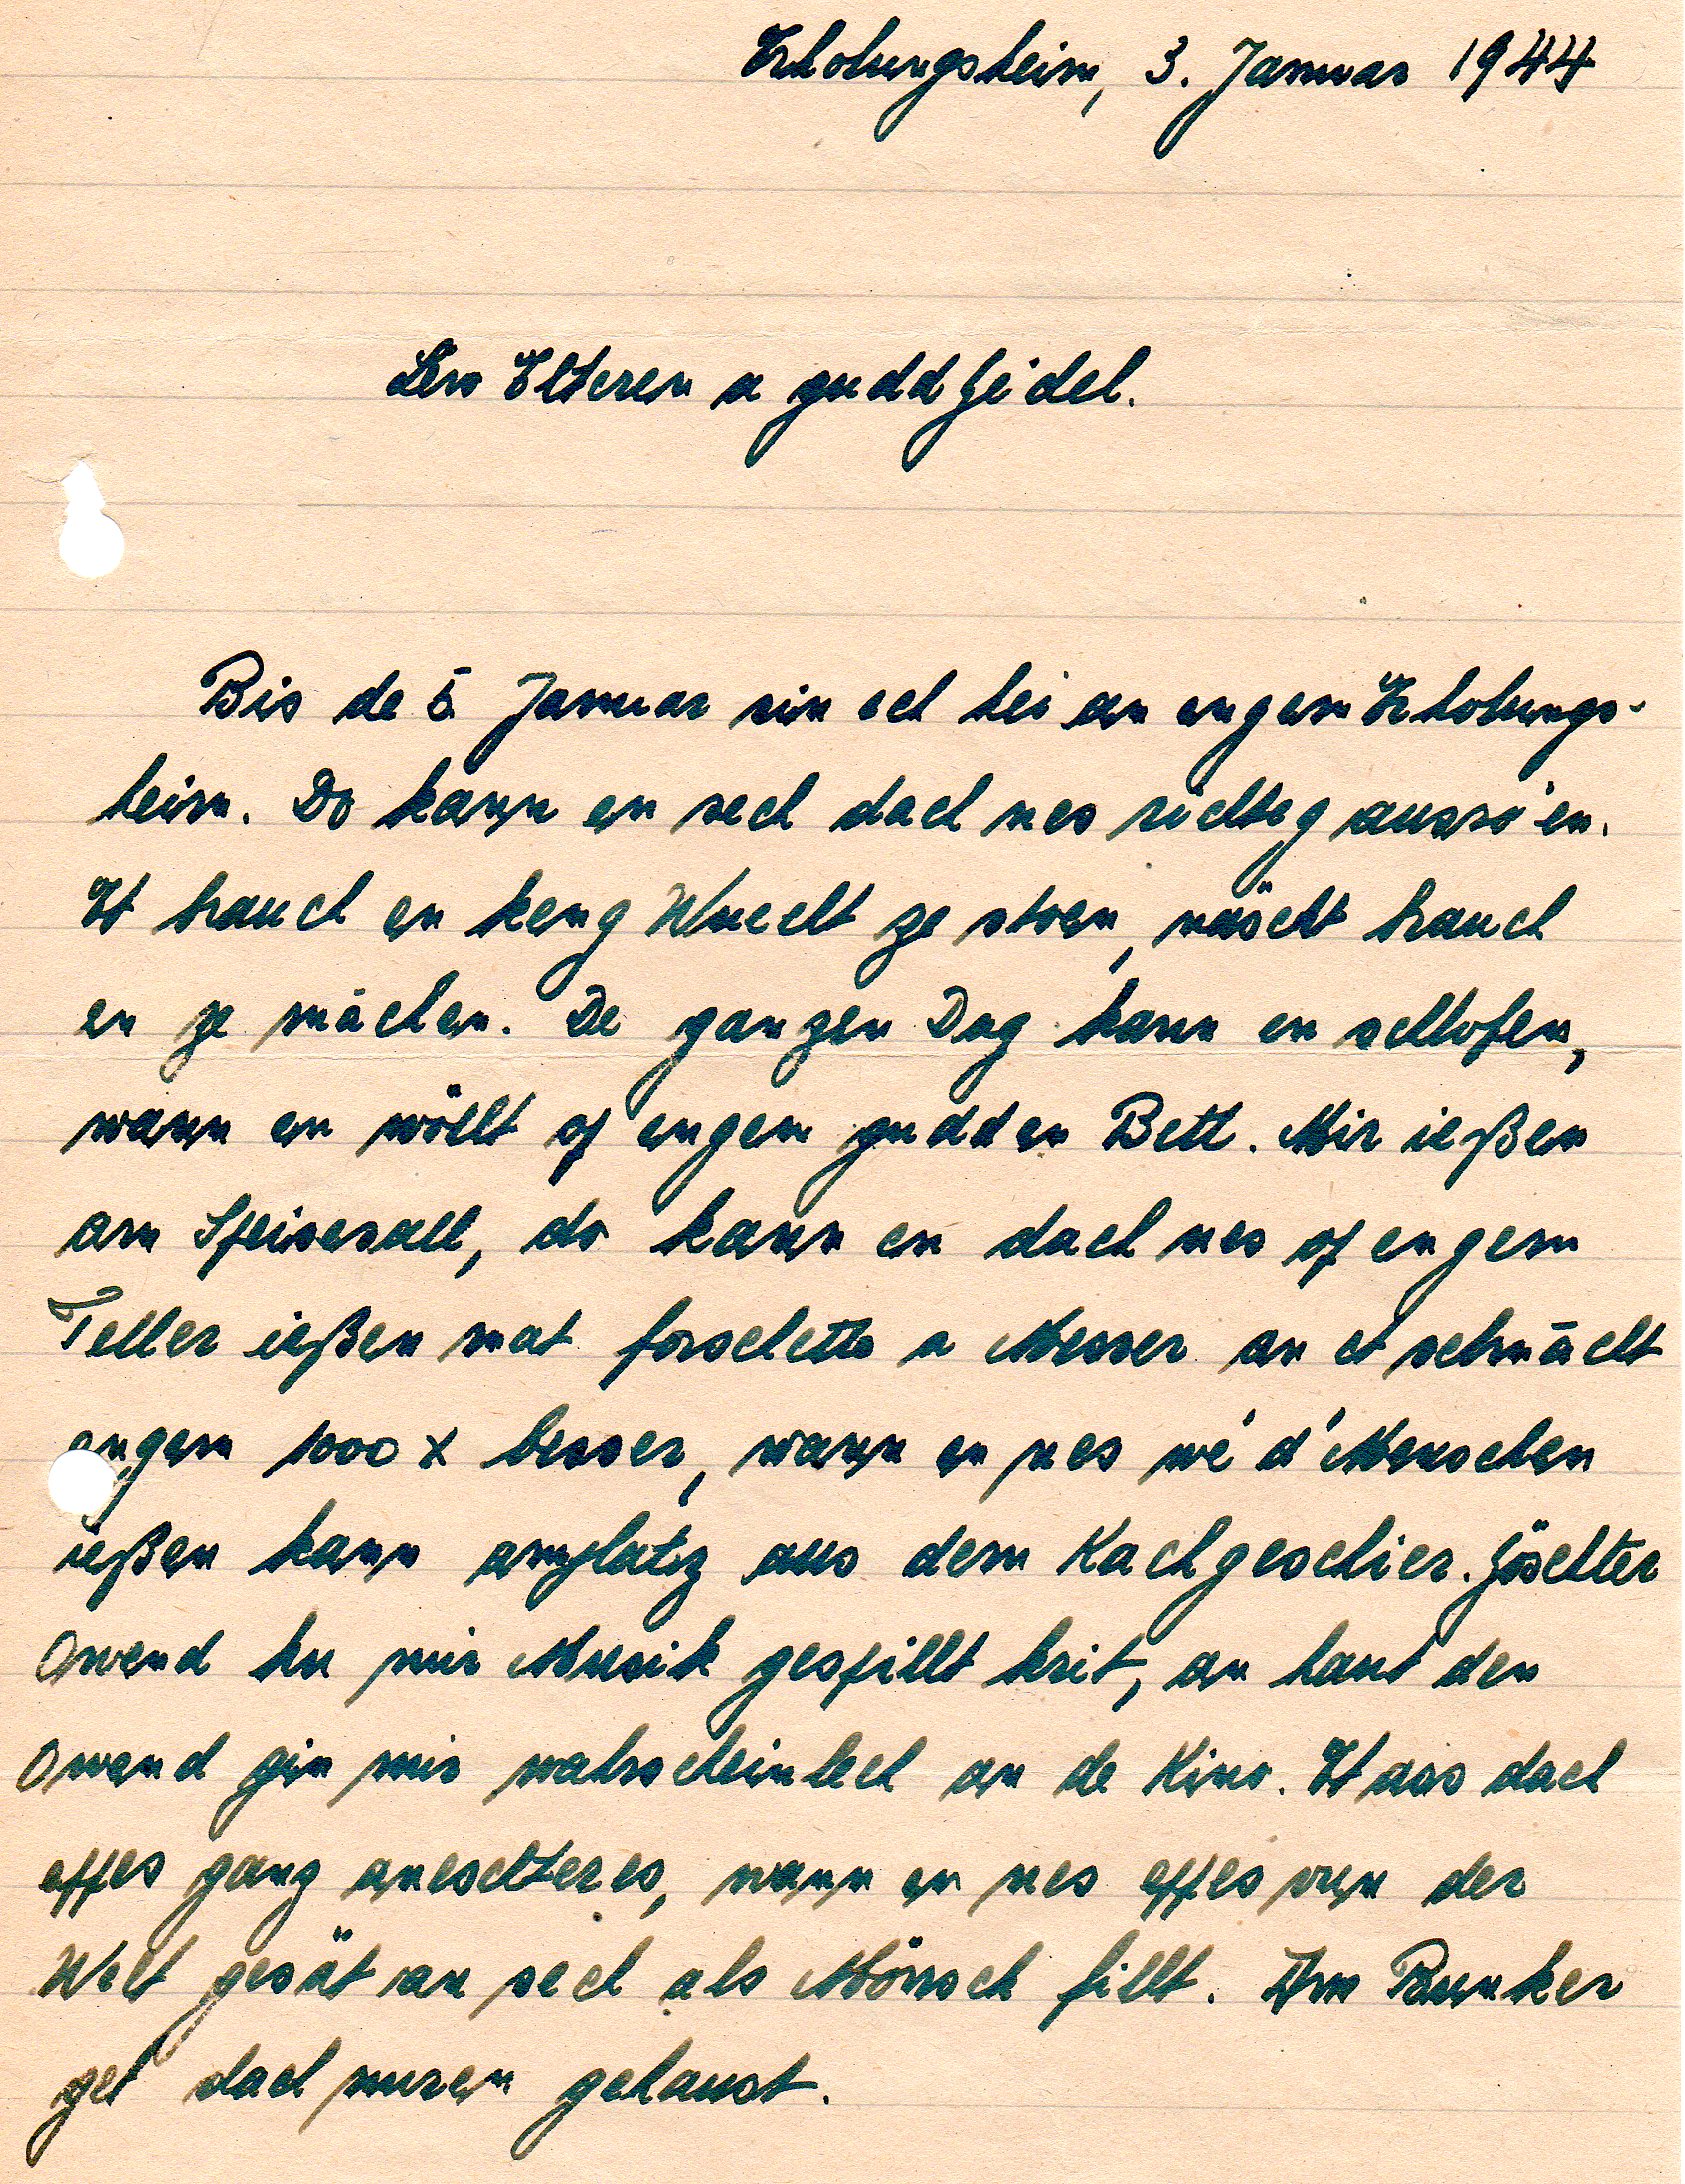 Erholungsheim, 3. Januar 1944
Léw Elteren a gudd Jéidel.
Bis de 5 Januar sin ech hei an engem Erholungs-
heim. Do kann en sech dach nes richteg ausro'en.
Et brauch en keng Wuecht ze stoen, näscht brauch
en ze mâchen. De ganzen Dag kann en schlofen,
wann en wöllt of engem gudden Bett. Mir ießen
am Speisesall, do kann en dach nes of engem
Teller ießen mat forschette a Messer an et schmâcht
engem 1000 x besser, wann en nes wé d'Menschen
ießen kann amplatz aus dem Kachgeschier. Göschter
Owend hu mir Musik gespillt krit, an haut den
Owend gin mir wahrscheinlech an de Kino. Et ass dach
effes ganz aneschteres, wann en nes effes vun der
Welt gesät an sech als Mönsch fillt. Am Bunker
get dach nuren gehaust.